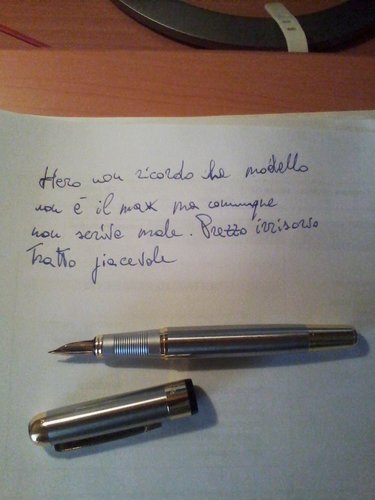 Hero non ricordo che modello
non è il max ma comunque
non scrive male. Prezzo irrisorio
Tratto piacevole